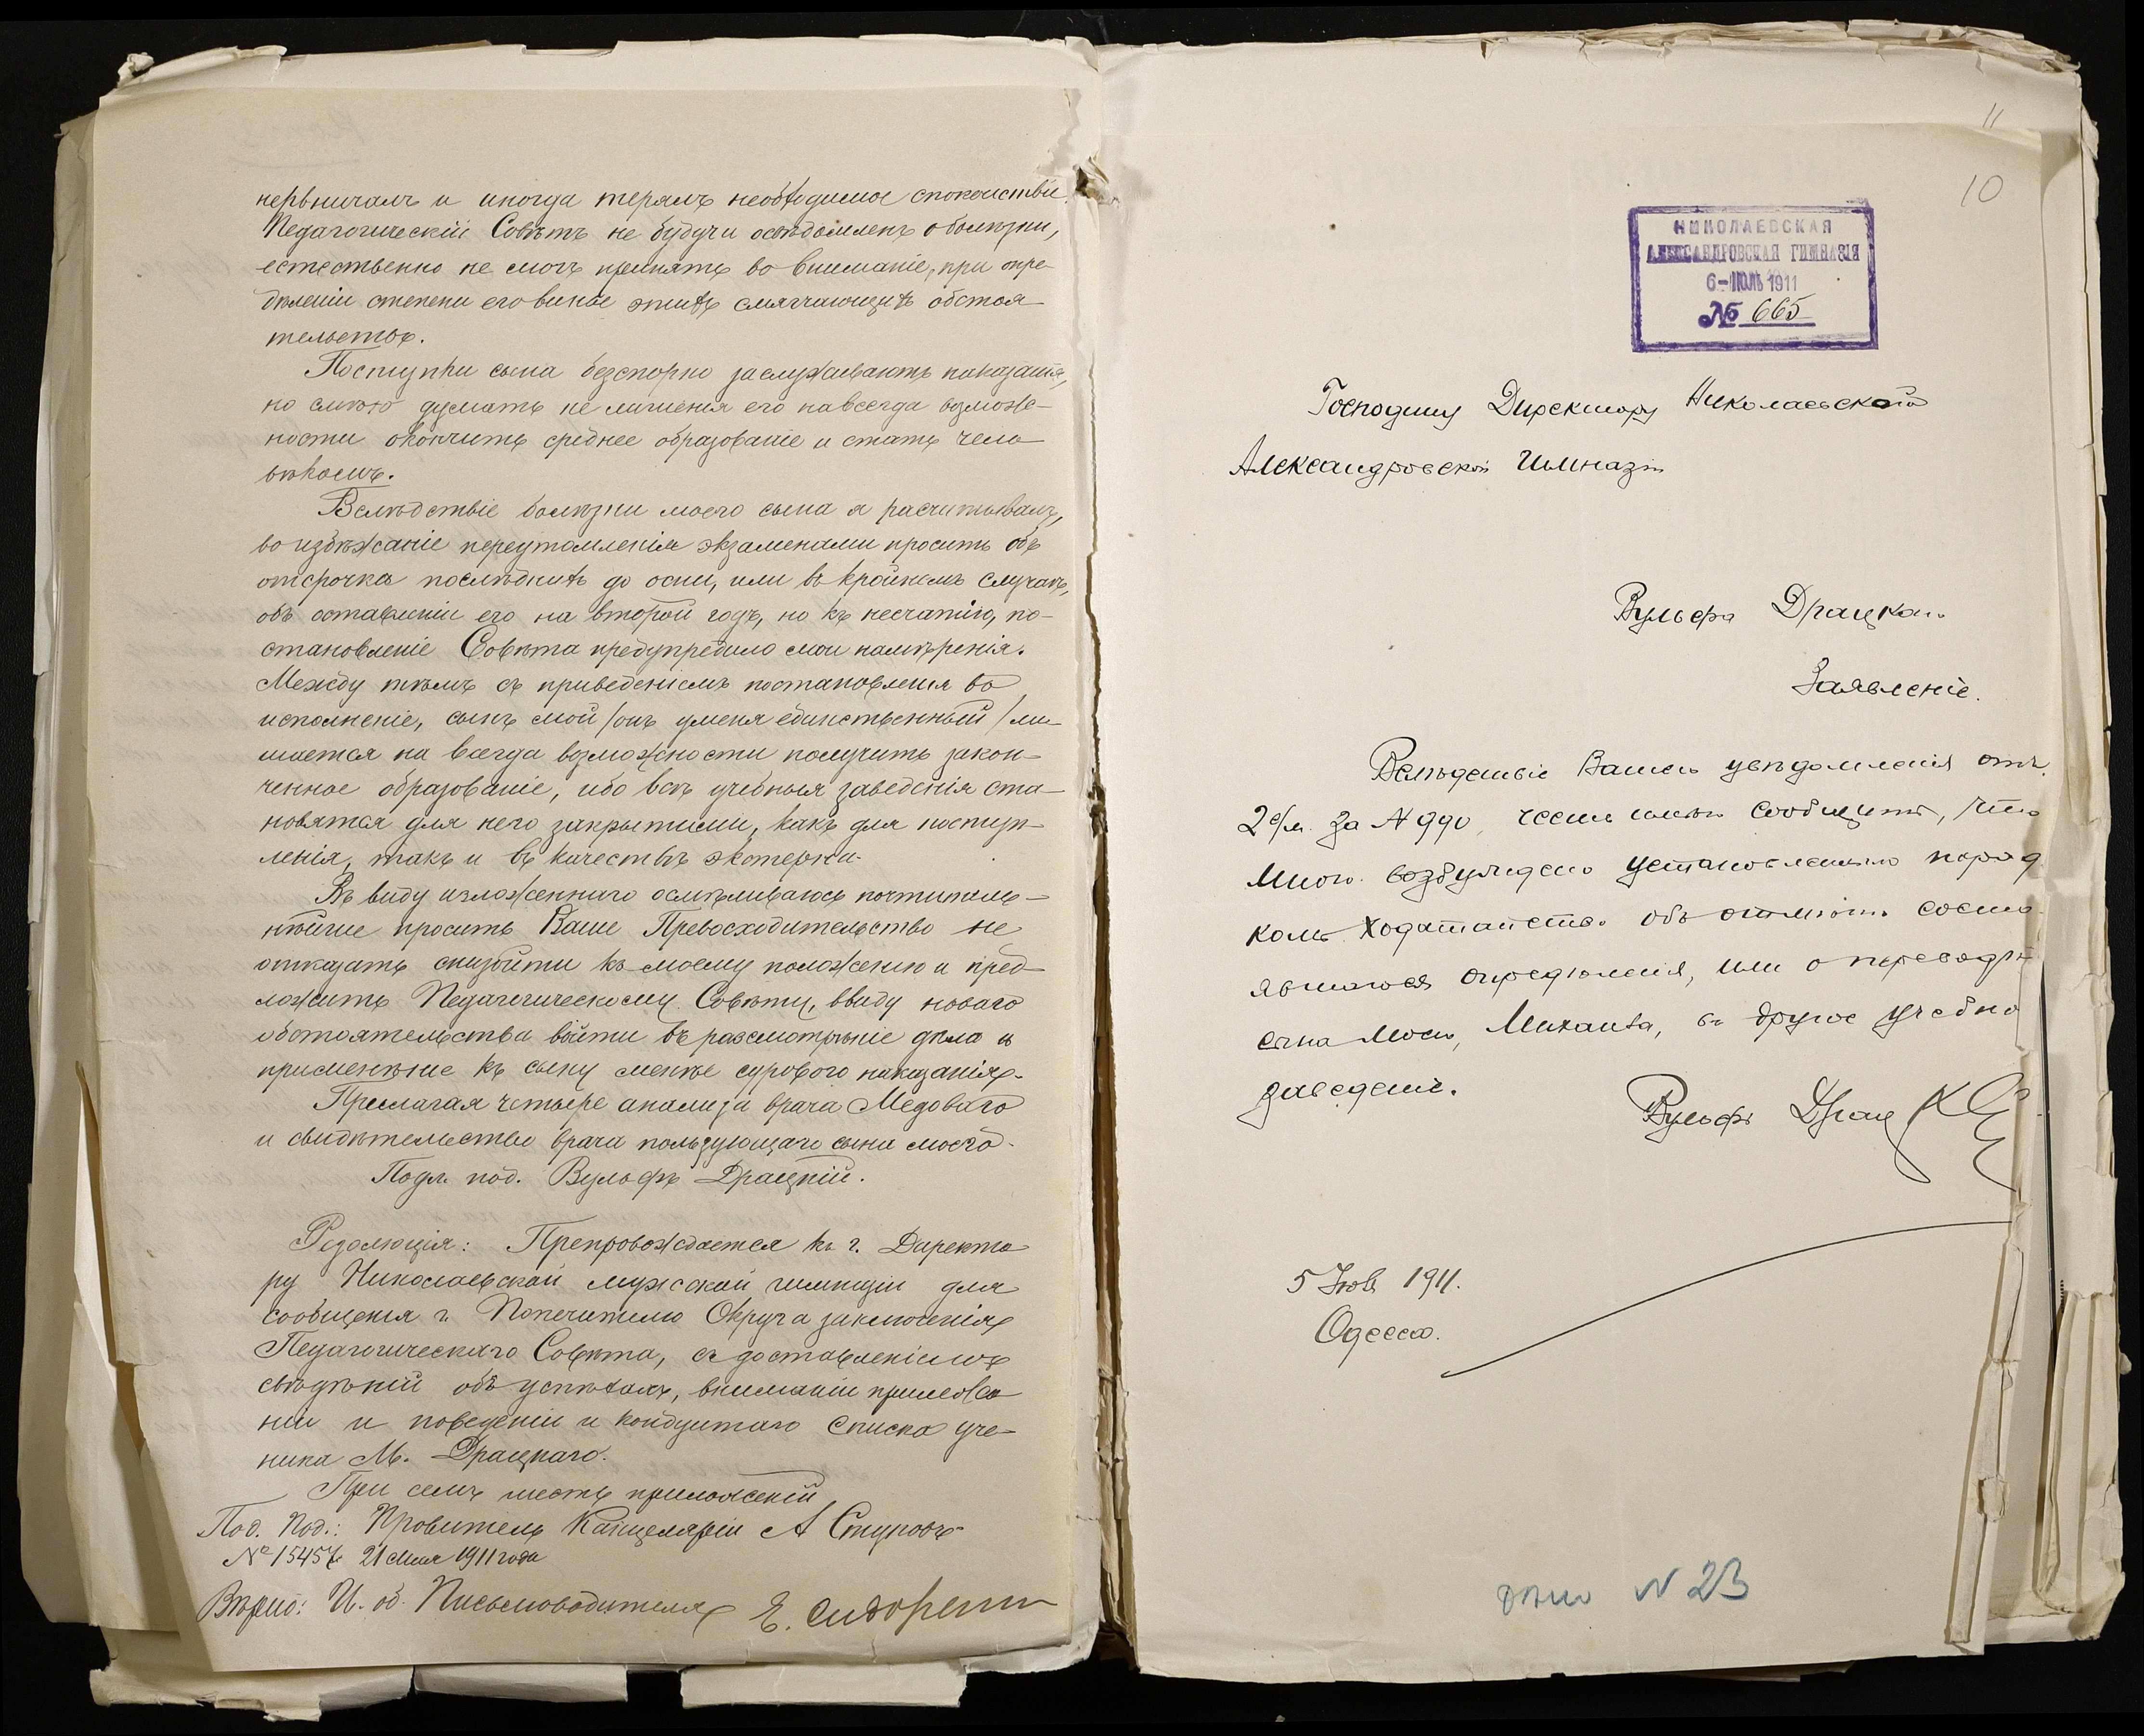 нервничалъ и иногда терялъ необходимое спокойствіе.
Педагогическій Совѣтъ не будучи освѣдомленъ о болѣзни,
естественно не могъ принять во вниманіе, при опре-
дѣленіи степени его вины этихъ смягчающихъ обстоя-
тельствъ.
Поступки сына безспорно заслуживаютъ наказанія,
но смѣю думать не лишенія его навсегда возмож-
ности окончить среднее образованіе и стать чело-
вѣкомъ.
Вслѣдствіе болѣзни моего сына я расчитывалъ,
во избѣжаніе переутомленія экзаменами просить объ
отсрочкѣ послѣднихъ до осени, или въ крайнемъ случаѣ,
объ оставленіи его на второй годъ, но къ несчатію, по-
становленіе Совѣта предупредило мои намѣренія.
Между тѣмъ съ приведеніемъ постановленія во
исполненіе, сынъ мой /онъ у меня единственный/ ли-
шается на всегда возможности получить закон-
ченное образованіе, ибо всѣ учебныя заведенія ста-
новятся для него закрытыми, какъ для поступ-
ленія, такъ и въ качествѣ экстерна.
Въ виду изложеннаго осмѣливаюсь почтитель-
нѣйше просить Ваше Превосходительство не
отказать снизойти къ моему положенію и пред-
ложить Педагогическому Совѣту, ввиду новаго
обстоятельства войти въ разсмотрѣніе дѣла и
примѣненіе къ сыну менѣе суроваго наказанія.
Прилагая четыре анализа врача Медоваго
и свидѣтельство врача пользующаго сына моего.
Подл. под. Вульфъ Драцкій.
Резолюція: Препровождается къ г. Директо
ру Николаевской мужской гимназіи для
сообщенія г. Попечителю Округа заключенія
Педагогическаго Совѣта, съ доставленіемъ
свѣдѣній объ успѣхахъ, вниманіи прилежа
ніи и поведеніи и кондуитнаго списка уче-
ника М. Драцкаго.
При семъ шесть приложеній
Под. Под.: Правитель Канцеляріи А Ступовъ
№ 15457 21 Мая 1911 года
Вѣрно: И. об. Письмоводителя Е. Сидоренко
11
10
НИКОЛАЕВСКАЯ
АЛЕКСАНДРОВСКАЯ ГИМНАЗІЯ
6-ІЮЛЬ 1911
№ 665
Господину Директору Николаевской
Александровской Гимназіи
Вульфа Драцкаго
Заявленіе.
Вслѣдствіе Вашего увѣдомленія отъ
2 с/м. за № 990, честь имѣю сообщить, что
мною возбуждено установленнымъ поряд
комъ ходатайство объ отмѣнѣ состо
явшагося опредѣленія, или о переводѣ
сына моего, Михаила, въ другое учебно
заведеніе.
Вульфъ Драцкій
5 Іюля 1911.
Одесса.
дѣло N 23